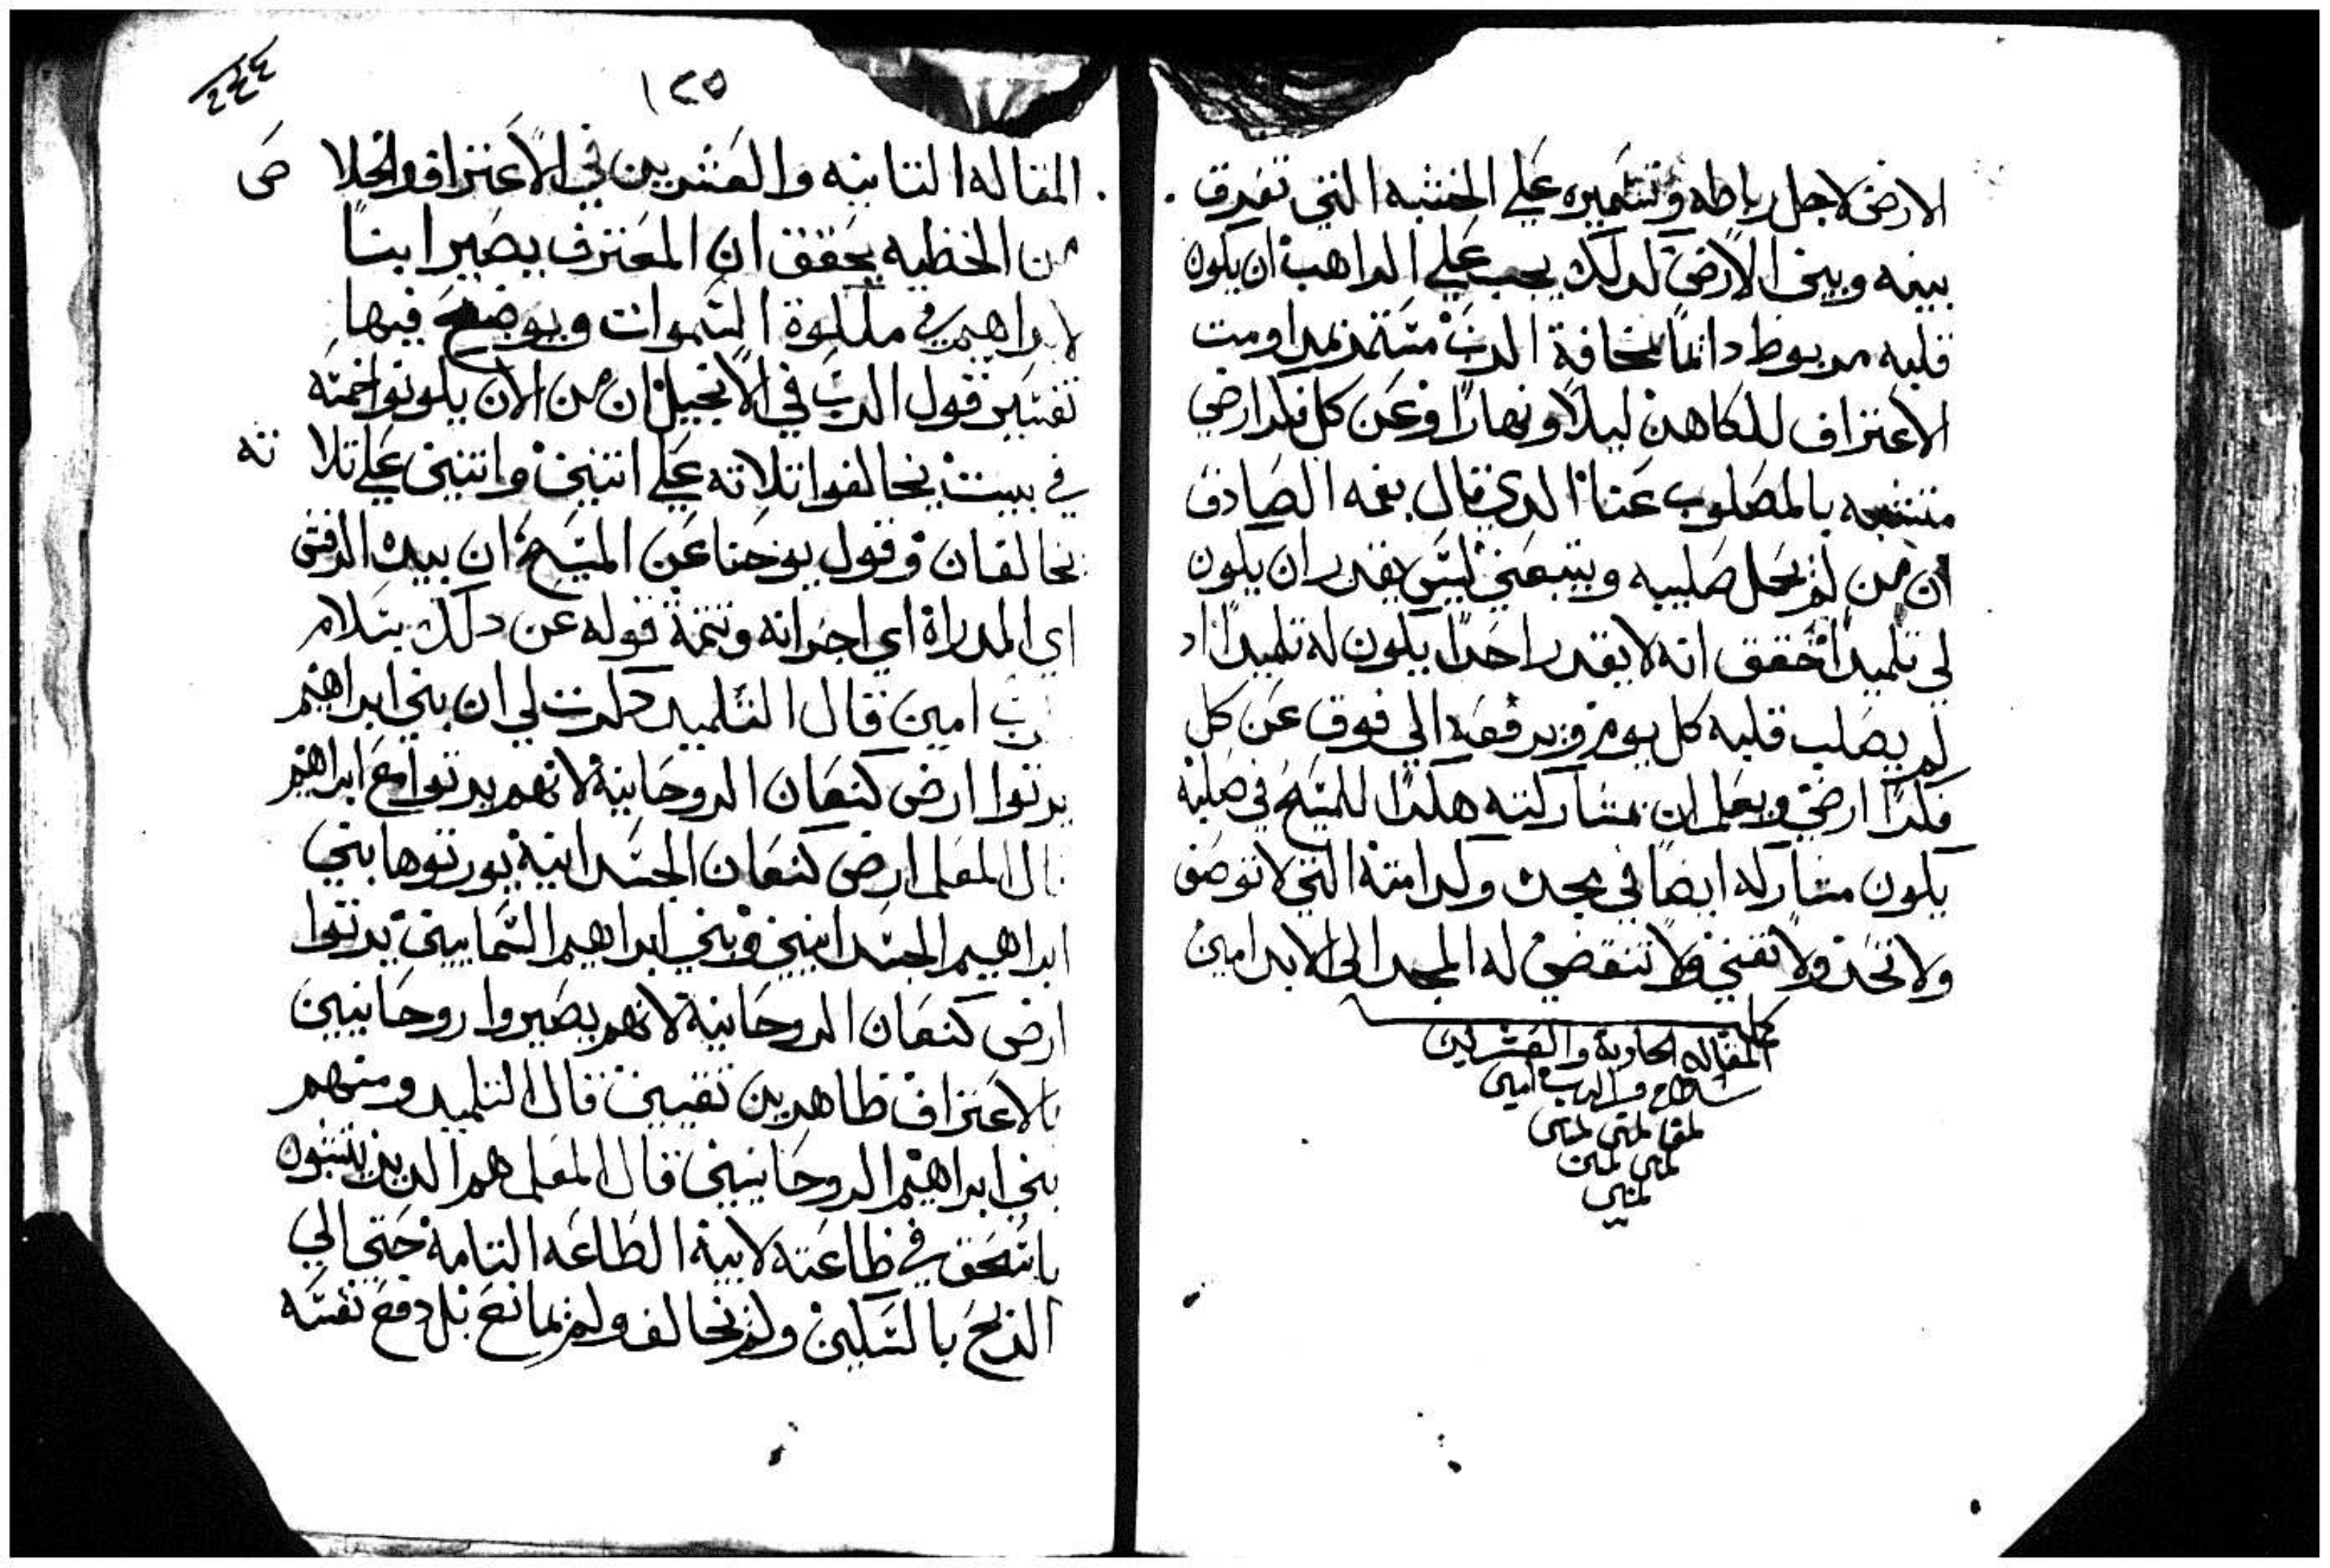 الارض لاجل رباطه وتسميره علي الخشبه التي تفرق
بينه وبين الارض لدلك يجب علي الراهب ان يكون
قلبه مربوط دايماً بمخافة الرب متسمر بمداومت
الاعتراف للكاهن ليلاً ونهاراً وعن كل فكر ارضي
متشبه بالمصلوب عنا الدي قال بفمه الصادق
ان من لم يحمل صليبه ويتبعني ليس يقدر ان يكون
لي تلميداً حقق انه لا يقدر احداً يكون له تلميداً اد
لم يصلب قلبه كل يوم ويرفعه الي فوق عن كل
فكراً ارضي ويعلم ان بمشاركته هكدا للمسيح في صلبه
يكون مشاركه ايضاً في مجده وكرامته التي لا توصف
ولا تحد ولا تفني ولا تنقضي له المجد الي الابد امين
كملة
المقاله الحادية والعشرين
بسلام من الرب امين
١٢٥
٢٤٤
المقاله التانيه والعشرين في الاعتراف والخلاص
من الخطيه يحقق ان المعترف يصير ابناً
لابراهيم في ملكوة السموات ويوضح فيها
تفسير قول الرب في الانجيل ان من الان يكونوا خمسه
في بيت يخالفوا تلاته علي اتنين واتنين علي تلاته
يخالفان وقول يوحنا عن المسيح ان بيده الرفش
اي المدراة اي اجرانه وتتمة قوله عن دلك بسلام
رب امين قال التلميد دكرت لي ان بني ابراهيم
يرتوا ارض كنعان الروحانية لانهم يرتوا مع ابراهيم
قال المعلم ارض كنعان الجسدانية يورتوها بني
ابراهيم الجسدانيين وبني ابراهيم السماييين يرتوا
ارض كنعان الروحانية لانهم يصيروا روحانيين
بالاعتراف طاهرين نقيين قال التلميد ومنهم
بني ابراهيم الروحانيين قال المعلم هم الدين يتشبهون
باسحق في طاعته لابيه الطاعه التامة حتي الي
الذبح بالسكين ولم يخالف ولم يمانع بل دفع نفسه